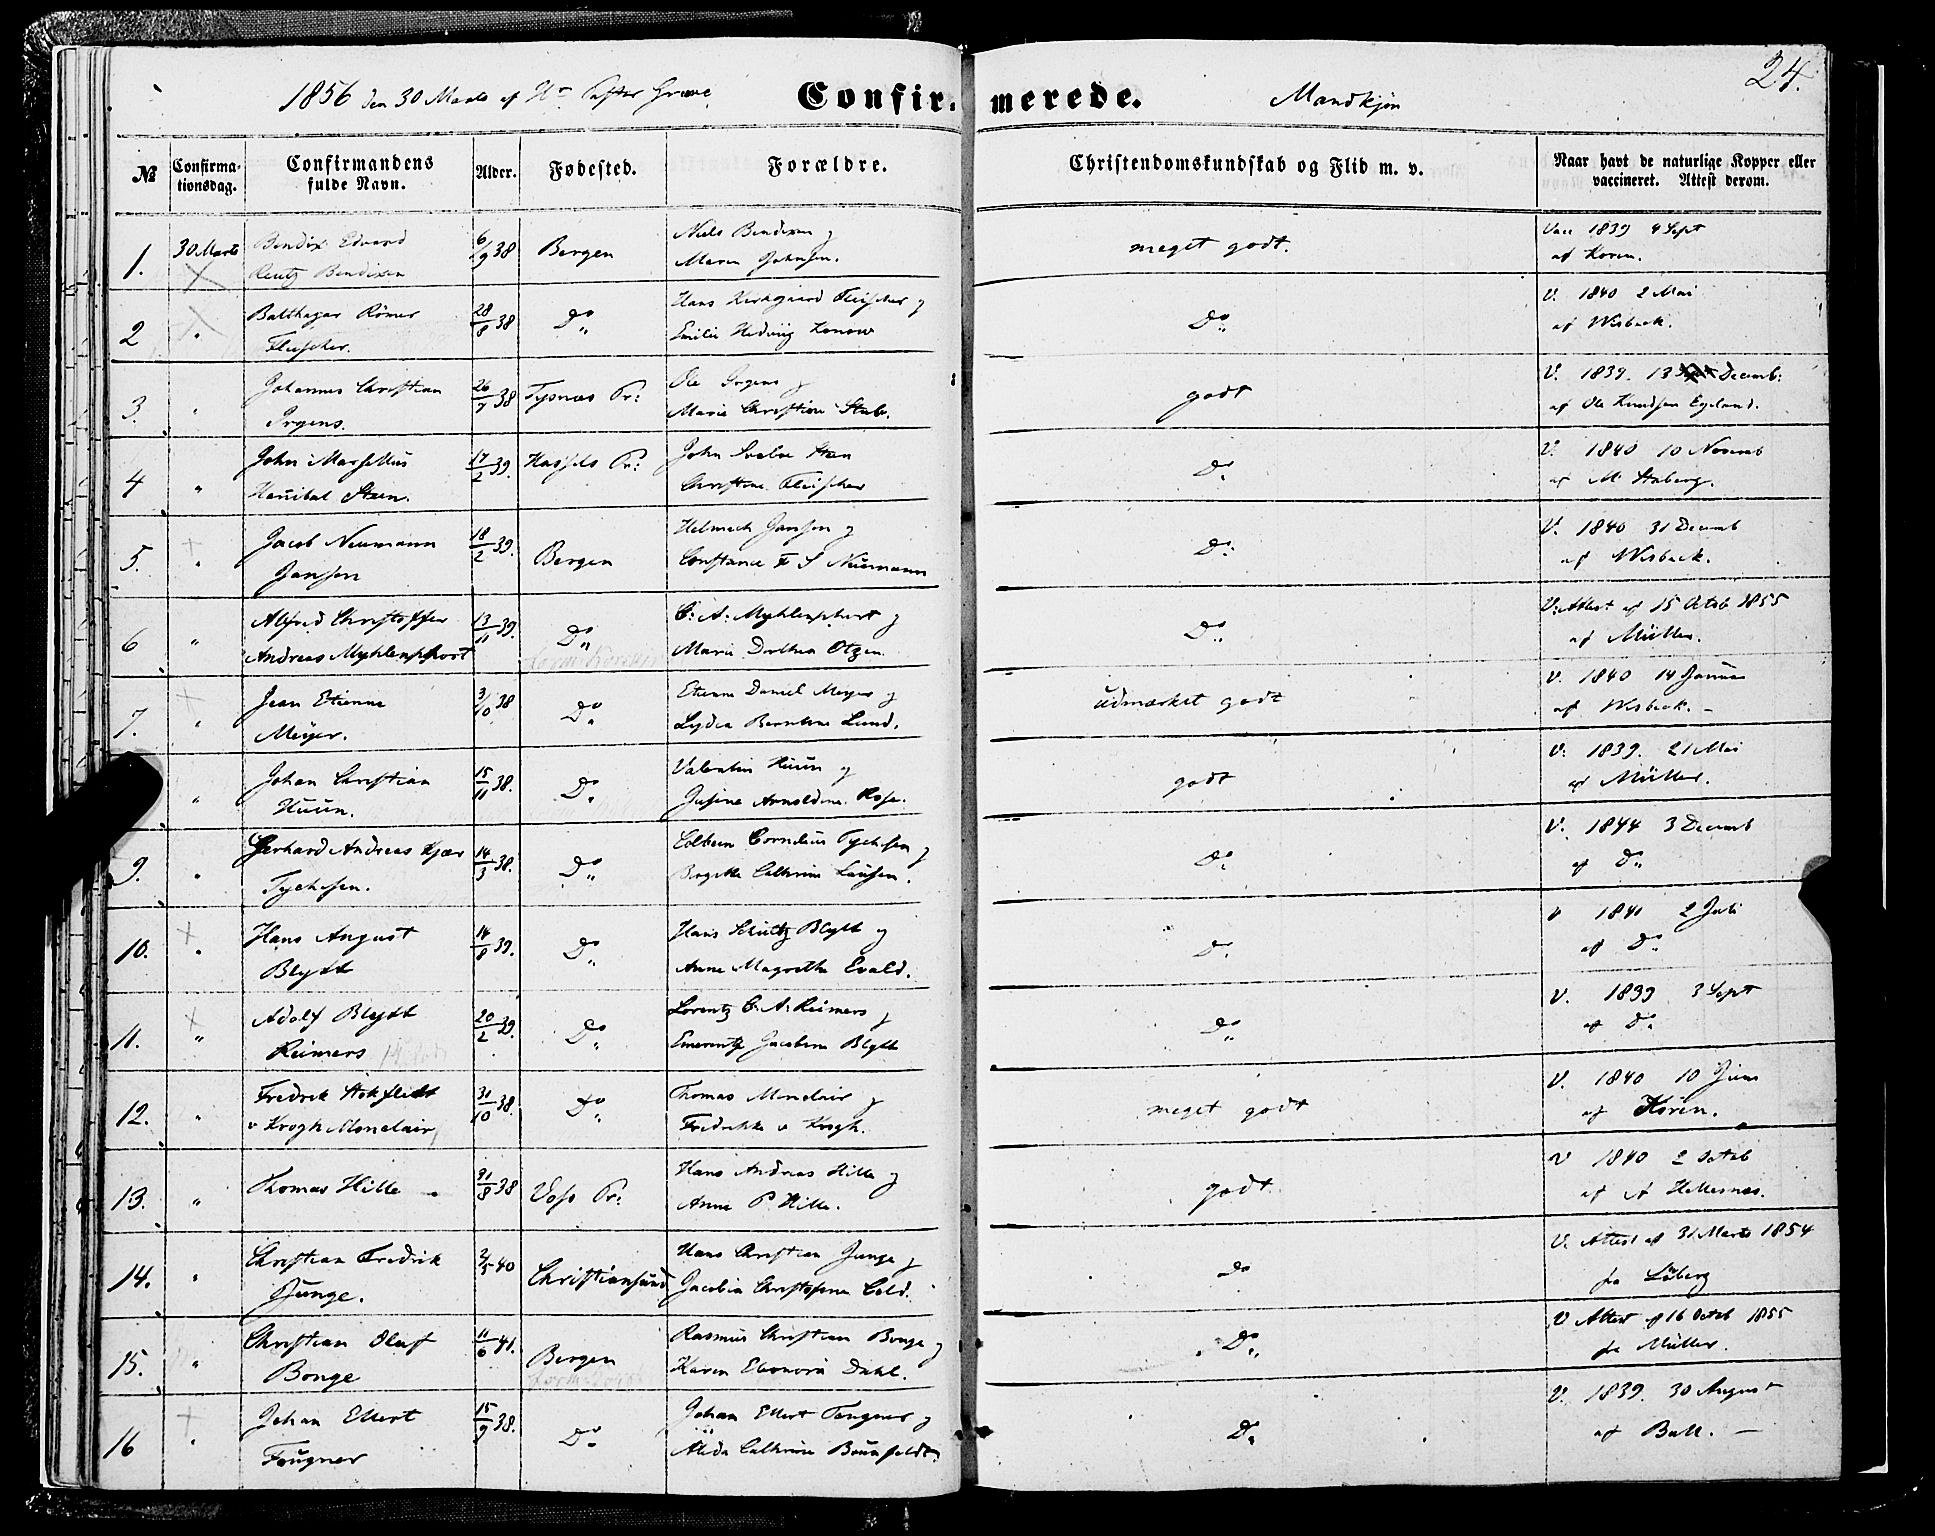 24.
1856 den 30 Marts af Hr Pastor Grave
Confirmerede.
Mandkjøn
№
Confirma-
tionsdag.
Confirmandens
fulde Navn.
Alder.
Fødested.
Forældre.
Christendomskundskab og Flid m. v.
Naar havt de naturlige Kopper eller
vaccineret. Attest derom.
1. 30 Marts Bendix Edvard 6/9 38 Bergen Niels Bendixen og meget godt. Vacc 1839 4 Sept
Reutz Bendixen Maren Johnsen. af Koren.
2 " Balthazar Römer 28/8 38 Do Hans Kirkgaard Fleischer og Do V. 1840 2 Mai
Fleischer. Emilie Hedvig Konow af Wisbeck.
3. " Johannes Christian 26/7 38 Tysnæs Pr: Ole Irgens og godt V. 1839. 13 Decemb:
Irgens. Marie Christine Stub. af Ole Knudsen Egeland.
4 " John Marsellius 17/2 39. Hassels Pr: John Steen Do V. 1840 10 Novemb
Hanibal Steen. Christine Fleischer af M. Staberg.
5. " Jacob Neumann 18/2 39. Bergen Helmich Janssen og Do V. 1840 31 Decemb
Janssen Constance F S Neumann af Wisbeck.
6 " Alfred Christoffer 13/11 39. Do C: A: Myhlenphort og Do V: Attest af 15 Octob 1855
Andreas Myhlenphort Marie Dorthea Otzen af Müller.
7. " Jean Etienne 3/10 38 Do Etienne Daniel Meyer og udmærket godt V. 1840 14 Januar
Meyer. Lydia Berntine Lund. af Wisbeck. –
" Johan Christian 15/11 38. Do Valentin Huun og godt V: 1839. 21 Mai
Huun. Jusine Arnoldine Rose. af Müller.
9. " Gerhard Andreas Kjær 14/3 38. Do Cornelius Tychesen og Do V. 1844 3 Decemb
Tychesen. Birgitte Cathrine af Do
10. " Hans August 14/8 39. Do Hans Schultz Blytt og Do V 1840 2 Juli
Blytt Anne Magrethe Evald. af Do
11. " Adolf Blytt 20/2 39. Do Lorentz C. A. Reimers og Do V. 1839 3 Sept
Reimers Emerentze Jacobine Blytt af Do
12. " Fredrik Stokfledt 31/10 38. Do Thomas Monclair og meget godt V. 1840 10 Juni
v Krogh Monclair Fredrikke v Krogh. af Koren.
13. " Thomas Hille 31/8 38 Voss Pr: Hans Andreas Hille og godt. V 1840 2 Octob
Anne P. Hille. af A Hellesnæs.
14. " Christian Fredrik 2/5 40 Christiansund Hans Christian Junge og Do V. Attest af 31 Marts 1854
Junge. Jacobia Christophine Cold. fra Löberg
15. " Christian Oluf 11/6 41. Bergen Rasmus Christian Bonge og Do V Attest af 16 Octob 1855
Bonge Karen Eleonora Dahl. fra Müller.
16 " Johan Ellert 15/9 38. Do Johan Ellert Fougner og Do V. 1839. 30 August
Fougner Alida Cathrine af Bull. –